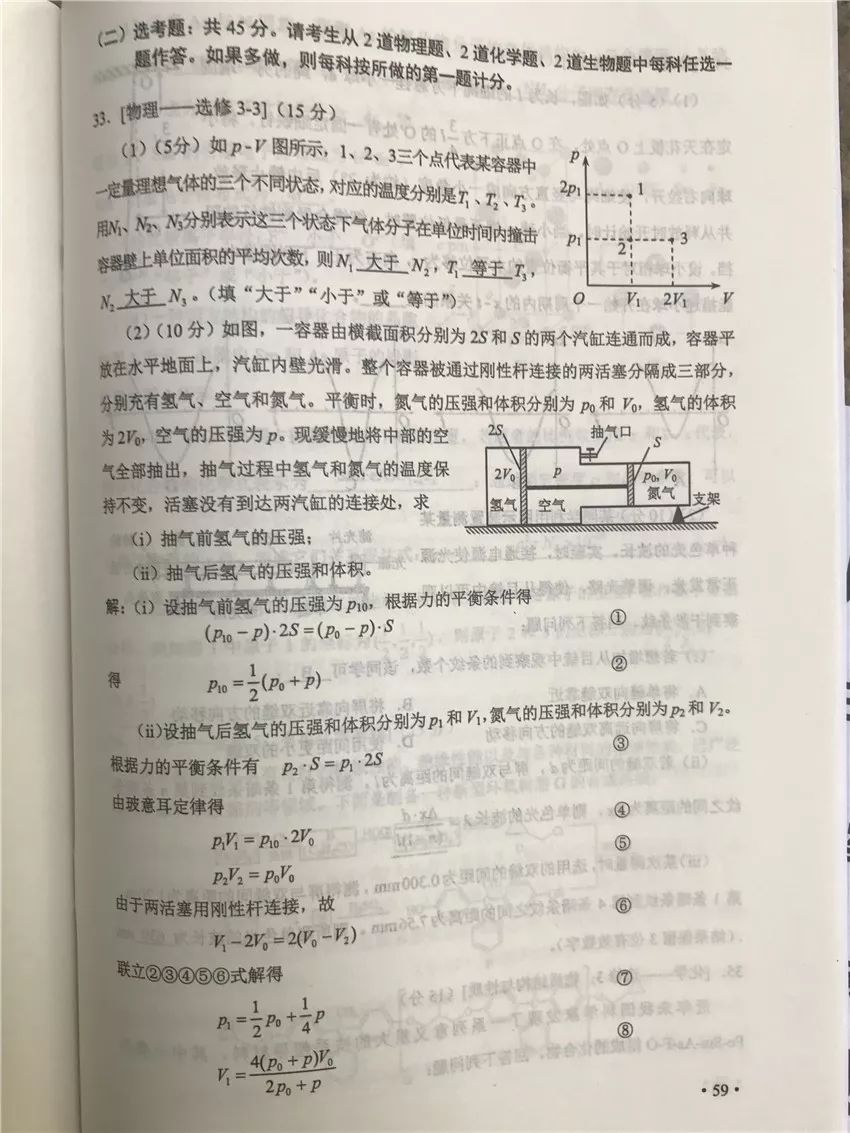 (二) 选考题：共 45 分。请考生从 2 道物理题、2 道化学题、2 道生物题中每科任选一
题作答。如果多做，则每科按所做的第一题计分。
33. [物理——选修 3-3] (15 分)
(1) (5分) 如 p-V 图所示，1、2、3三个点代表某容器中
一定量理想气体的三个不同状态，对应的温度分别是T₁、T₂、T₃。
用N₁、N₂、N₃分别表示这三个状态下气体分子在单位时间内撞击
容器壁上单位面积的平均次数，则 N₁ 大于 N₂，T₁ 等于 T₃，
N₂ 大于 N₃。(填 “大于”“小于” 或 “等于”)
p
2p₁
1
p₁
2
3
O
V₁
2V₁
V
(2) (10 分) 如图，一容器由横截面积分别为 2S 和 S 的两个汽缸连通而成，容器平
放在水平地面上，汽缸内壁光滑。整个容器被通过刚性杆连接的两活塞分隔成三部分，
分别充有氢气、空气和氮气。平衡时，氮气的压强和体积分别为 p₀ 和 V₀，氢气的体积
为 2V₀，空气的压强为 p。现缓慢地将中部的空
气全部抽出，抽气过程中氢气和氮气的温度保
持不变，活塞没有到达两汽缸的连接处，求
(i) 抽气前氢气的压强；
(ii) 抽气后氢气的压强和体积。
2S
抽气口
S
2V₀
p
p₀, V₀
氢气
空气
氮气
支架
解：(i) 设抽气前氢气的压强为 p₁₀，根据力的平衡条件得
(p₁₀ − p)·2S = (p₀ − p)·S ①
得 p₁₀ = 1/2 (p₀ + p) ②
(ii)设抽气后氢气的压强和体积分别为 p₁ 和 V₁，氮气的压强和体积分别为 p₂ 和 V₂。
根据力的平衡条件有 p₂·S = p₁·2S ③
由玻意耳定律得
p₁V₁ = p₁₀·2V₀ ④
p₂V₂ = p₀V₀ ⑤
由于两活塞用刚性杆连接，故
V₁ − 2V₀ = 2(V₀ − V₂) ⑥
联立②③④⑤⑥式解得
p₁ = 1/2 p₀ + 1/4 p ⑦
V₁ = 4(p₀ + p)V₀ / 2p₀ + p ⑧
· 59 ·